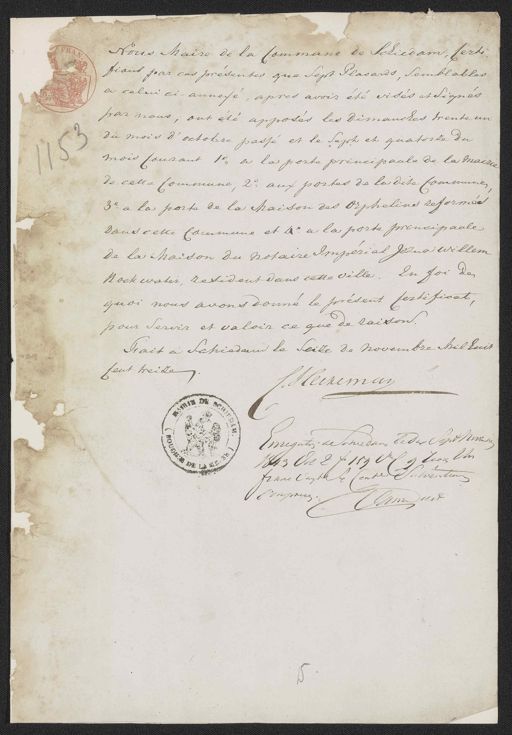 Nous Maire de la Commune de Schiedam, Certi
fions par ces présentes que Sept Placards, Semblables
a celui ci annexé, apres avoir été visés et Signés
par nous, ont été apposés les dimanches trente un
du mois d'octobre passé et le Sept et quatorze du
mois Courant 1º a la porte principale de la mairie
de cette Commune, 2º aux portes de la dite Commune,
3º a la porte de la Maison des Orphelins reformés
dans cette Commune et 4º a la porte principale
de la Maison du Notaire Impérial Jean Willem
resident dans cette ville. En foi de
quoi nous avons donné le présent Certificat,
pour Servir et valoir ce que de raison.
Fait a Schiedam le Seize de novembre Mil huit
Cent treize
1153
MAIRIE DE SCHIEDAM
BOUCHES DE LA MEUSE
5